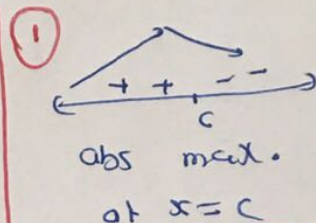 1
+ + - -
c
abs max.
at x = c